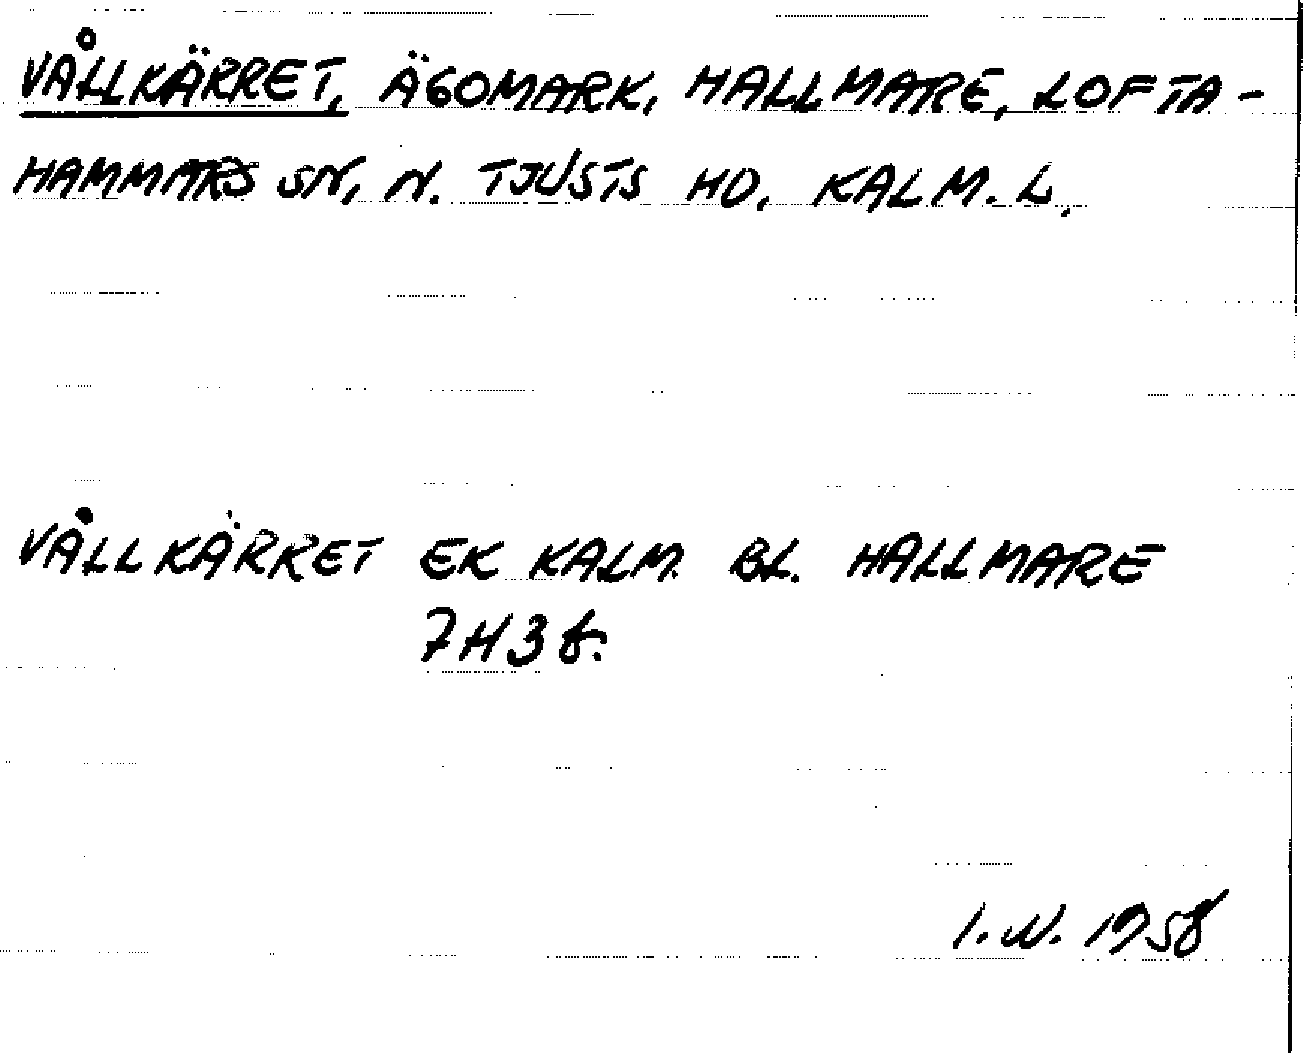 VÅLLKÄRRET, ÄGOMARK, HALLMARE, LOFTA-
HAMMARS SN, N. TJUSTS HD, KALM. L.
VÅLLKÄRRET EK KALM. BL. HALLMARE
7H3f.
I. N. 1958